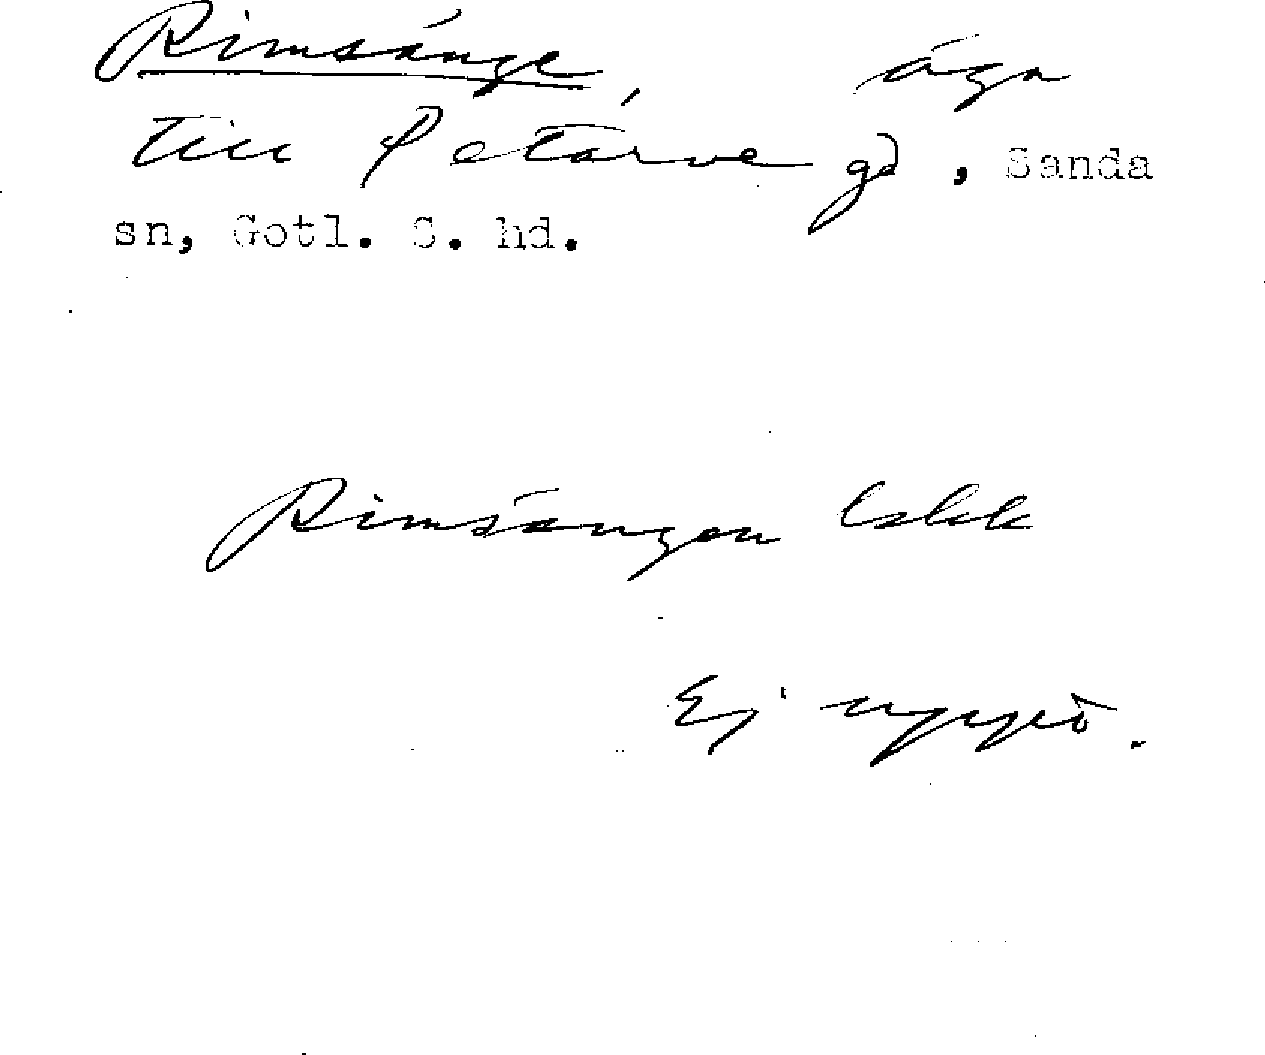 Rimsänge, äga
till Petärve gd, Sanda
sn, Gotl. S. hd.
Rimsängen Eskk
Ej uppö.